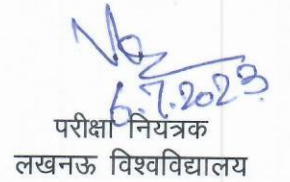 6.7.2023
परीक्षा नियत्रक
लखनऊ विश्वविद्यालय